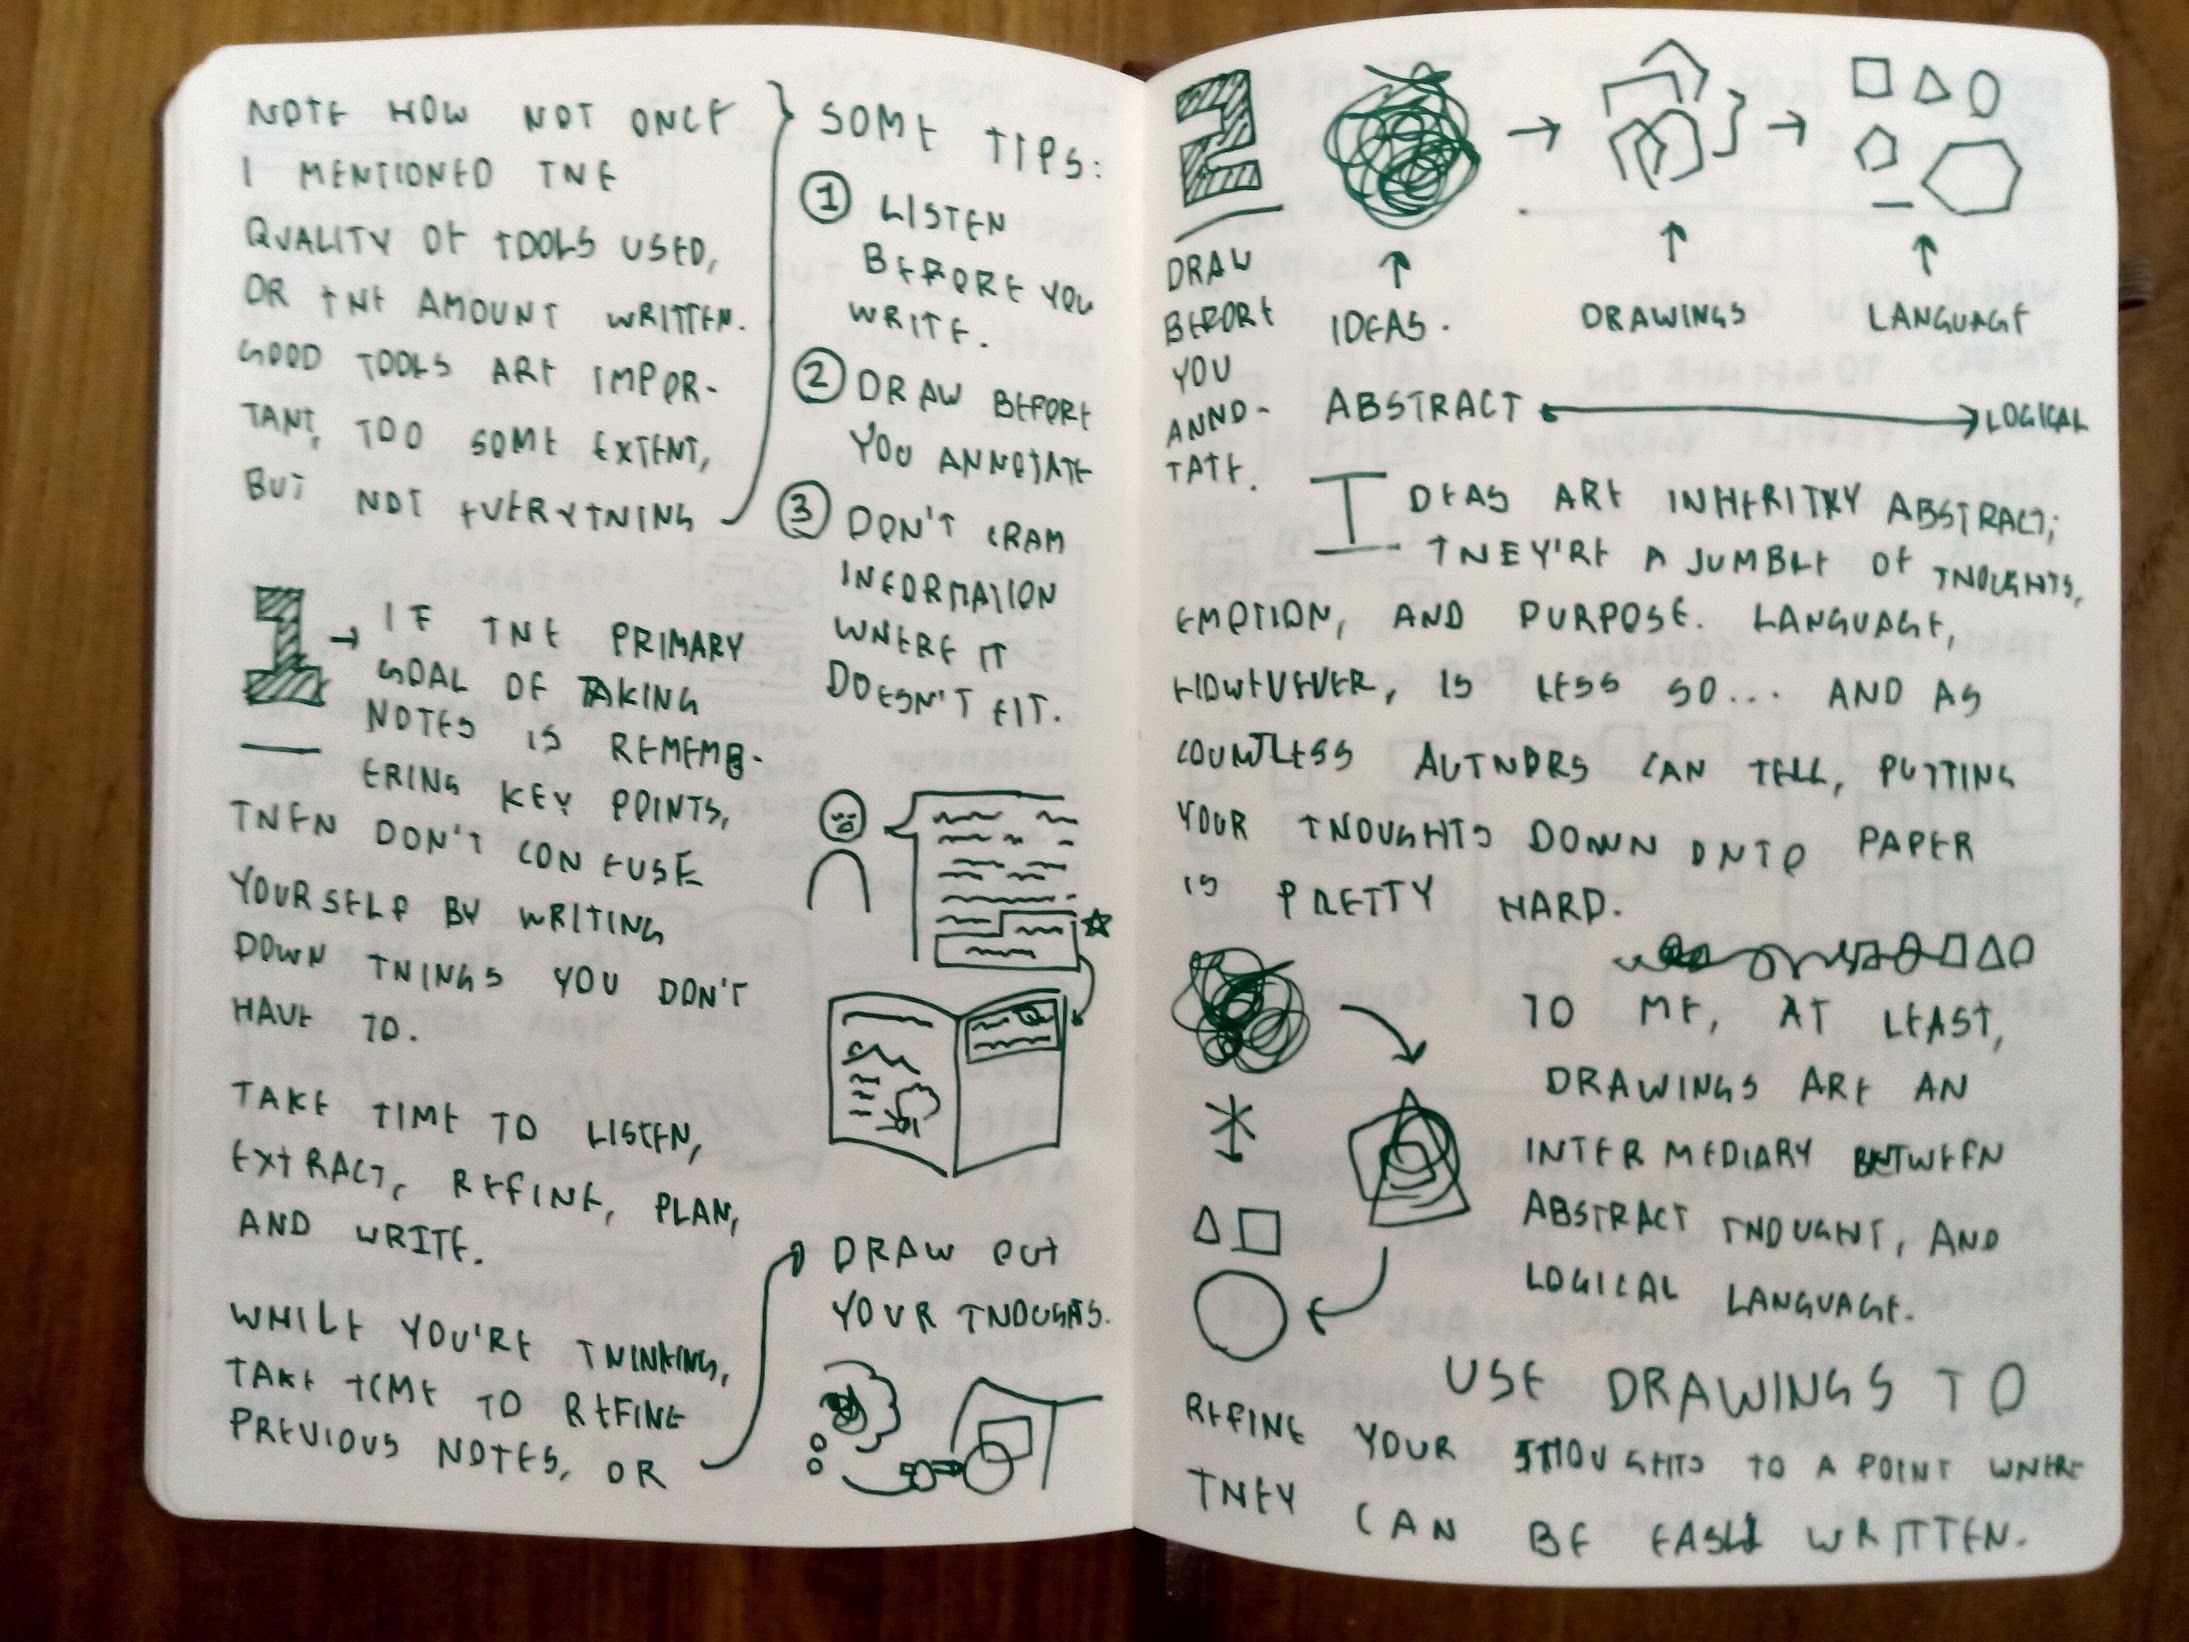 NOTE HOW NOT ONCE
I MENTIONED THE
QUALITY OF TOOLS USED,
OR THE AMOUNT WRITTEN.
GOOD TOOLS ARE IMPOR-
TANT, TOO SOME EXTENT,
BUT NOT EVERYTHING
1 → IF THE PRIMARY
GOAL OF TAKING
NOTES IS REMEMB-
ERING KEY POINTS,
THEN DON'T CONFUSE
YOURSELF BY WRITING
DOWN THINGS YOU DON'T
HAVE TO.
TAKE TIME TO LISTEN,
EXTRACT, REFINE, PLAN,
AND WRITE.
WHILE YOU'RE THINKING,
TAKE TIME TO REFINE
PREVIOUS NOTES, OR
SOME TIPS:
1 LISTEN
BEFORE YOU
WRITE.
2 DRAW BEFORE
YOU ANNOTATE
3 DON'T CRAM
INFORMATION
WHERE IT
DOESN'T FIT.
DRAW OUT
YOUR THOUGHTS.
2
DRAW
BEFORE
YOU
ANNO-
TATE.
→ →
↑ ↑ ↑
IDEAS. DRAWINGS LANGUAGE
ABSTRACT ⟷ LOGICAL
IDEAS ARE INHERITKY ABSTRACT;
THEY'RE A JUMBLE OF THOUGHTS,
EMOTION, AND PURPOSE. LANGUAGE,
HOWEVEVER, IS LESS SO... AND AS
COUNTLESS AUTHORS CAN TELL, PUTTING
YOUR THOUGHTS DOWN ONTO PAPER
IS PRETTY HARD.
TO ME, AT LEAST,
DRAWINGS ARE AN
INTERMEDIARY BETWEEN
ABSTRACT THOUGHT, AND
LOGICAL LANGUAGE.
USE DRAWINGS TO
REFINE YOUR THOUGHTS TO A POINT WHERE
THEY CAN BE EASILY WRITTEN.